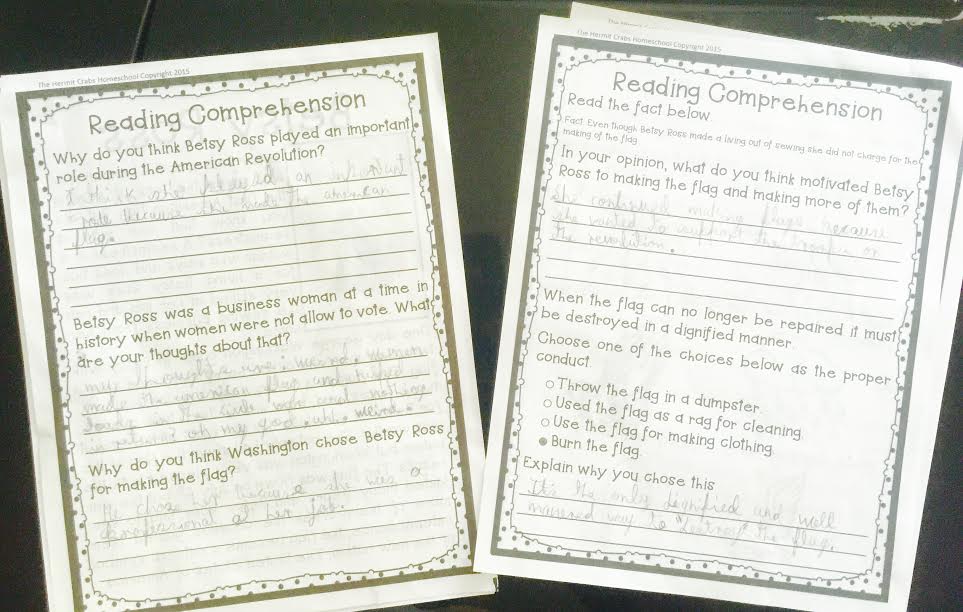 The Hermit Crabs Homeschool Copyright 2015
Reading Comprehension
Why do you think Betsy Ross played an important
role during the American Revolution?
I think she played an important
role because she made the american
flag.
Betsy Ross was a business woman at a time in
history when women were not allow to vote. What
are your thoughts about that?
my thoughts are: weird. women
made the american flag and helped
in the civil war and nothing
in return? oh my god. uhh. weird.
Why do you think Washington chose Betsy Ross
for making the flag?
He chose her because she was a
professional at her job.
The Hermit Crabs Homeschool Copyright 2015
Reading Comprehension
Read the fact below.
Fact: Even though Betsy Ross made a living out of sewing she did not charge for the
making of the flag.
In your opinion, what do you think motivated Betsy
Ross to making the flag and making more of them?
She continued making flags because
she wanted to support the
the revolution.
When the flag can no longer be repaired it must
be destroyed in a dignified manner.
Choose one of the choices below as the proper
conduct.
Throw the flag in a dumpster.
Used the flag as a rag for cleaning.
Use the flag for making clothing.
Burn the flag.
Explain why you chose this
It's the only dignified and well
manered way to "destroy" the flag.